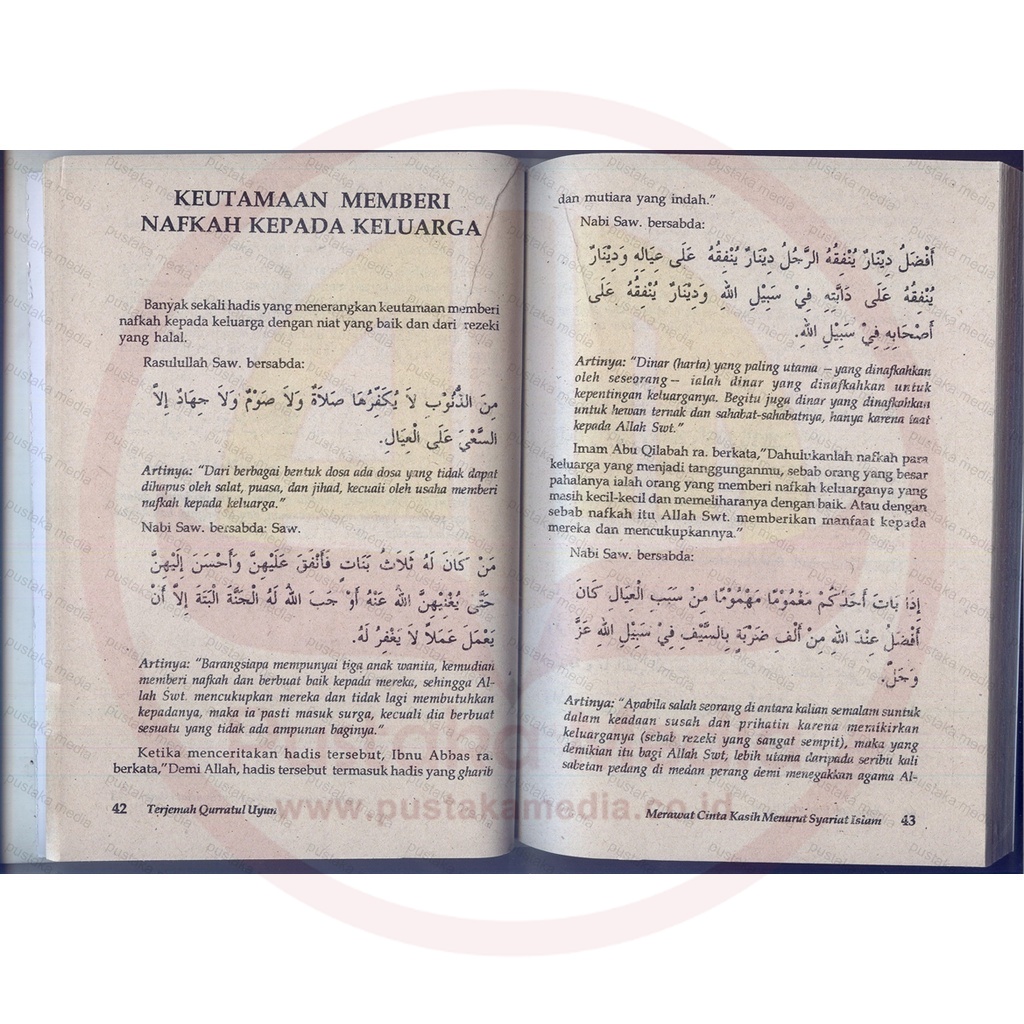 KEUTAMAAN MEMBERI
NAFKAH KEPADA KELUARGA
Banyak sekali hadis yang menerangkan keutamaan memberi
nafkah kepada keluarga dengan niat yang baik dan dari rezeki
yang halal.
Rasulullah Saw. bersabda:
مِنَ الذُّنُوْبِ لاَ يُكَفِّرُهَا صَلاَةٌ وَلاَ صَوْمٌ وَلاَ جِهَادٌ إِلاَّ
السَّعْيَ عَلَى الْعِيَالِ.
Artinya: "Dari berbagai bentuk dosa ada dosa yang tidak dapat
dihapus oleh salat, puasa, dan jihad, kecuali oleh usaha memberi
nafkah kepada keluarga."
Nabi Saw. bersabda: Saw.
مَنْ كَانَ لَهُ ثَلاَثُ بَنَاتٍ فَأَنْفَقَ عَلَيْهِنَّ وَأَحْسَنَ إِلَيْهِنَّ
حَتَّى يُغْنِيْهِنَّ اللهُ عَنْهُ أَوْ جَبَ اللهُ لَهُ الْجَنَّةَ الْبَتَةَ إِلاَّ أَنْ
يَعْمَلَ عَمَلاً لاَ يَغْفِرُ لَهُ.
Artinya: "Barangsiapa mempunyai tiga anak wanita, kemudian
memberi nafkah dan berbuat baik kepada mereka, sehingga Al-
lah Swt. mencukupkan mereka dan tidak lagi membutuhkan
kepadanya, maka ia pasti masuk surga, kecuali dia berbuat
sesuatu yang tidak ada ampunan baginya."
Ketika menceritakan hadis tersebut, Ibnu Abbas ra.
berkata,"Demi Allah, hadis tersebut termasuk hadis yang gharib
42 Terjemah Qurratul Uyun
dan mutiara yang indah."
Nabi Saw. bersabda:
أَفْضَلُ دِيْنَارٌ يُنْفِقُهُ الرَّجُلُ دِيْنَارٌ يُنْفِقُهُ عَلَى عِيَالِهِ وَدِيْنَارٌ
يُنْفِقُهُ عَلَى دَابَّتِهِ فِيْ سَبِيْلِ اللهِ وَدِيْنَارٌ يُنْفِقُهُ عَلَى
أَصْحَابِهِ فِيْ سَبِيْلِ اللهِ.
Artinya: "Dinar (harta) yang paling utama – yang dinafkahkan
oleh seseorang – ialah dinar yang dinafkahkan untuk
kepentingan keluarganya. Begitu juga dinar yang dinafkahkan
untuk hewan ternak dan sahabat-sahabatnya, hanya karena taat
kepada Allah Swt."
Imam Abu Qilabah ra. berkata,"Dahulukanlah nafkah para
keluarga yang menjadi tanggunganmu, sebab orang yang besar
pahalanya ialah orang yang memberi nafkah keluarganya yang
masih kecil-kecil dan memeliharanya dengan baik. Atau dengan
sebab nafkah itu Allah Swt. memberikan manfaat kepada
mereka dan mencukupkannya."
Nabi Saw. bersabda:
إِذَا بَاتَ أَحَدُكُمْ مَغْمُوْمًا مَهْمُوْمًا مِنْ سَبَبِ الْعِيَالِ كَانَ
أَفْضَلُ عِنْدَ اللهِ مِنْ أَلْفِ ضَرْبَةٍ بِالسَّيْفِ فِيْ سَبِيْلِ اللهِ عَزَّ
وَجَلَّ.
Artinya: "Apabila salah seorang di antara kalian semalam suntuk
dalam keadaan susah dan prihatin karena memikirkan
keluarganya (sebab rezeki yang sangat sempit), maka yang
demikian itu bagi Allah Swt, lebih utama daripada seribu kali
sabetan pedang di medan perang demi menegakkan agama Al-
Merawat Cinta Kasih Menurut Syariat Islam 43
www.pustakamedia.co.id